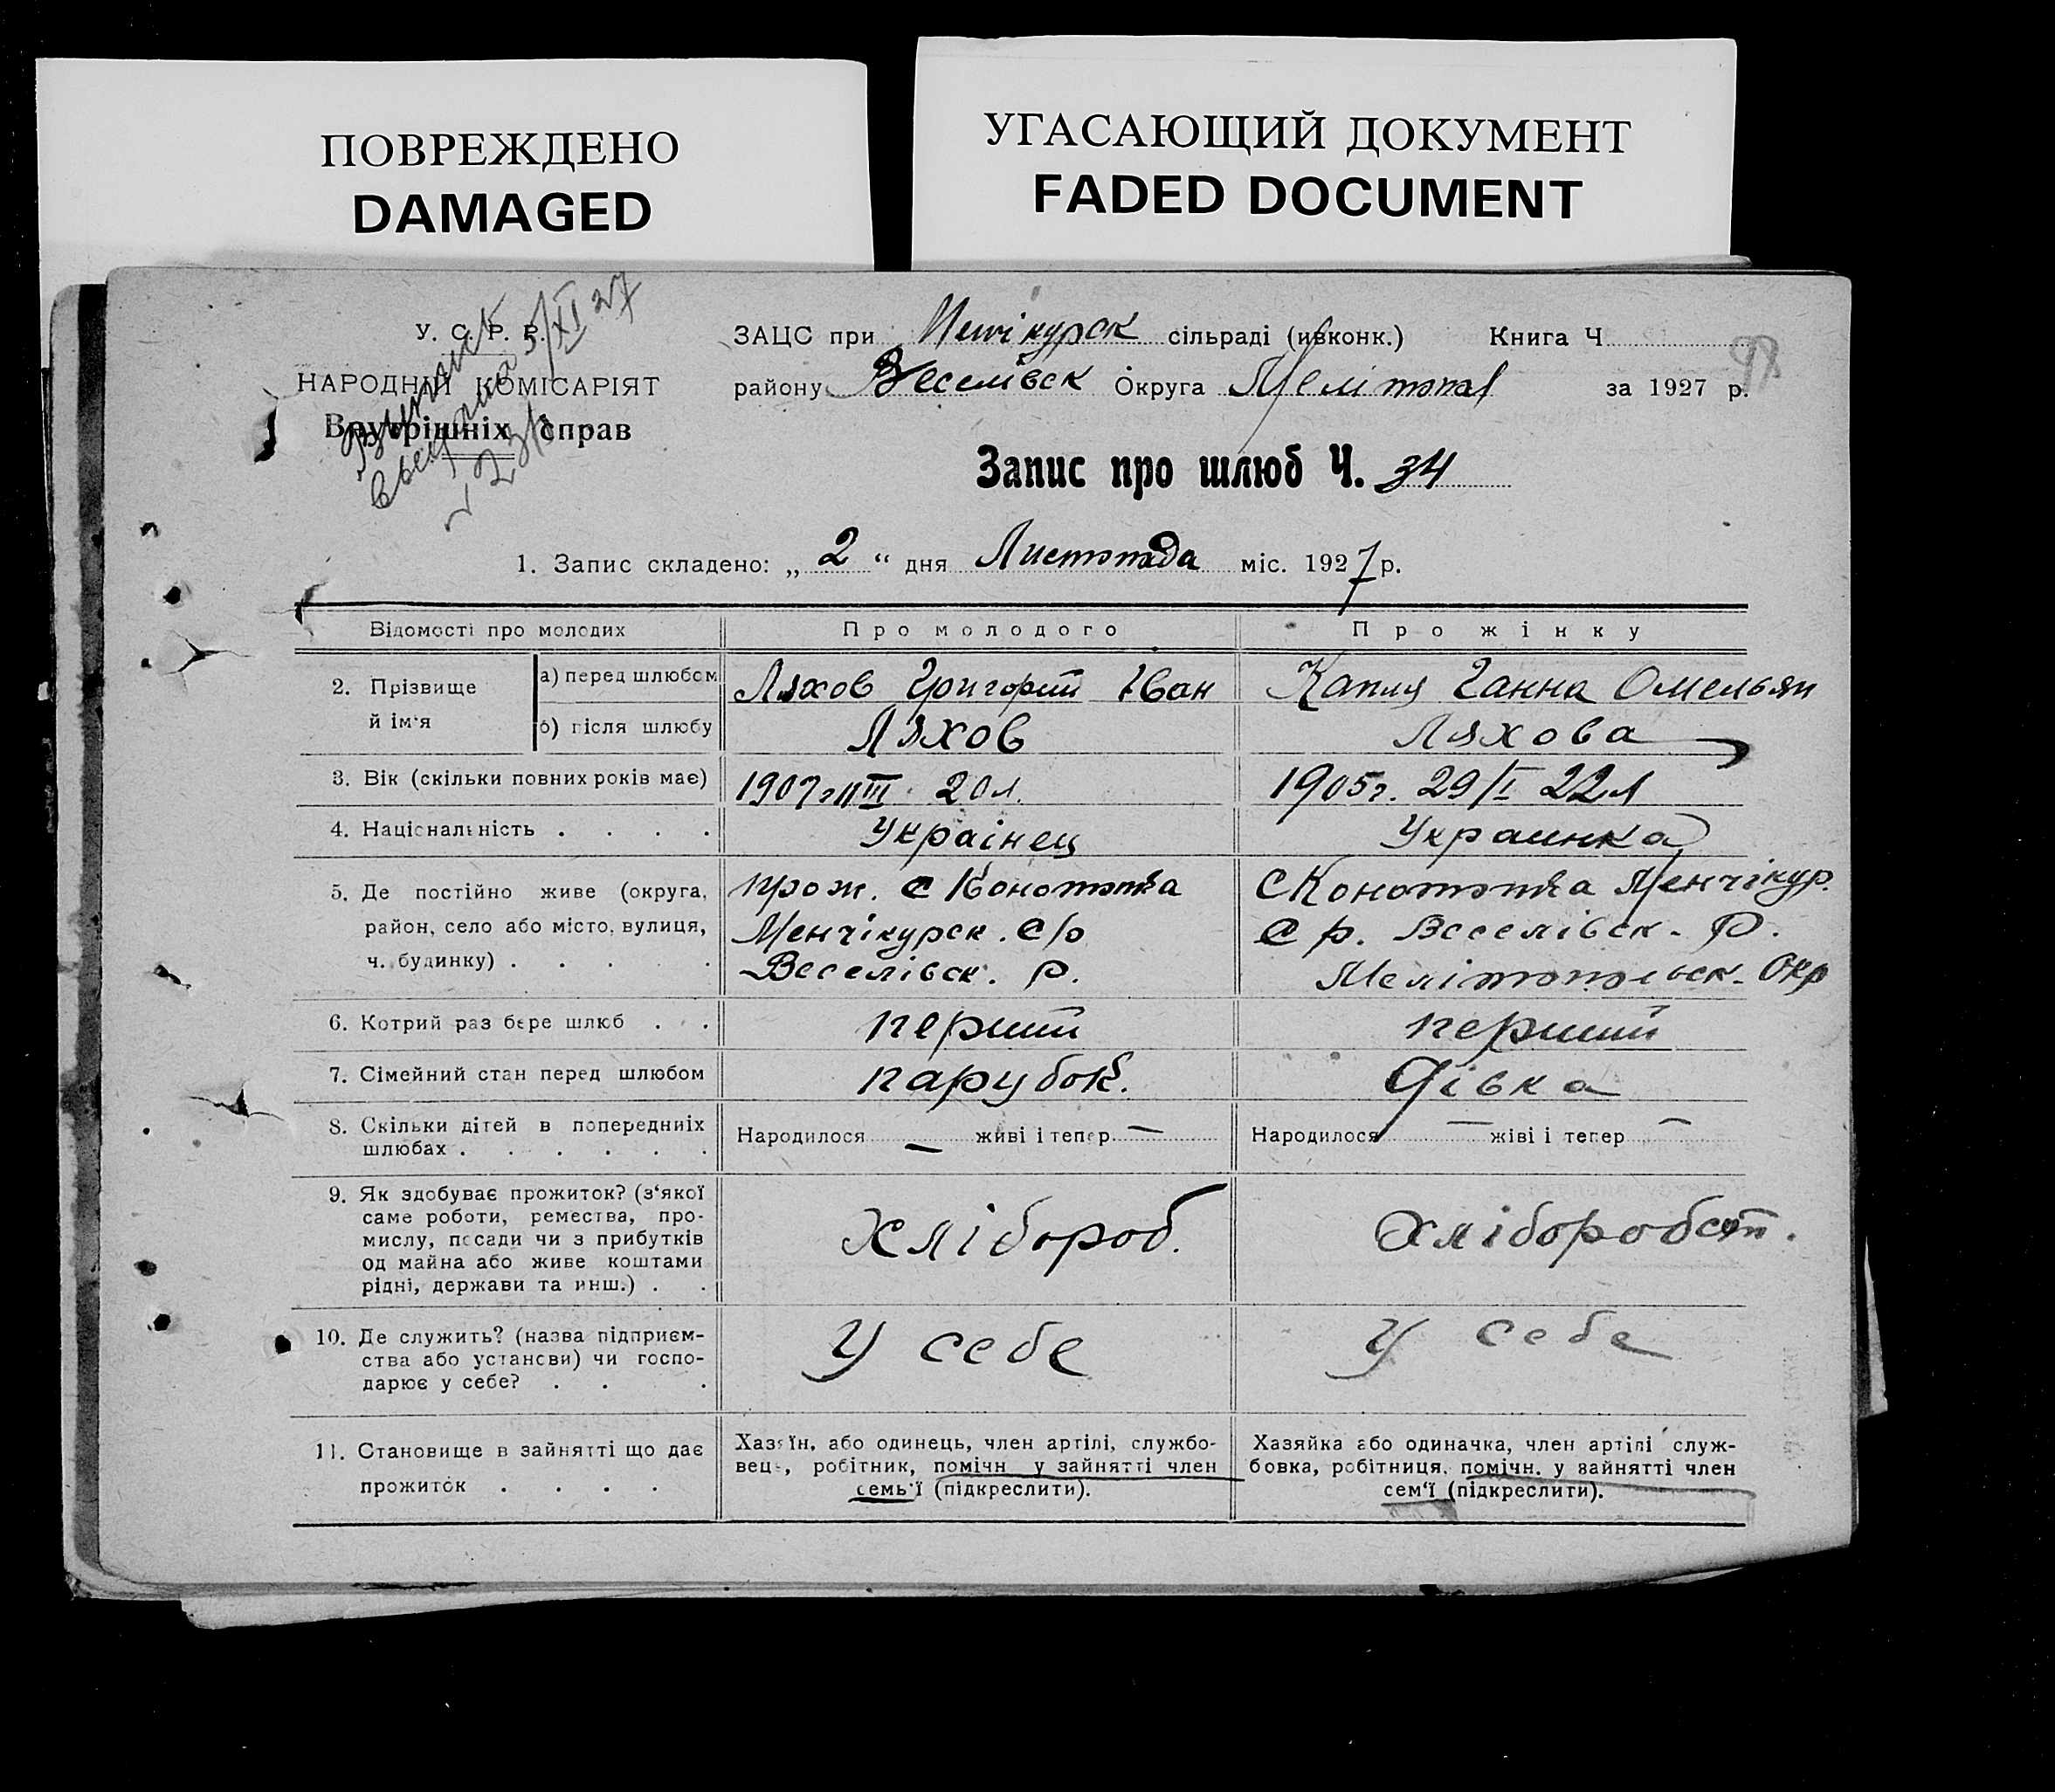 ПОВРЕЖДЕНО
DAMAGED
УГАСАЮЩИЙ ДОКУМЕНТ
FADED DOCUMENT
У. С. Р. Р.
НАРОДНІЙ КОМІСАРІЯТ
Внутрішніх справ
5/XI 27
ЗАЦС при сільраді (ивконк.) Книга Ч
98
району Веселівск Округа Мелітопол за 1927 р.
Запис про шлюб Ч. 34
1. Запис складено: „ 2 “ дня Листопада міс. 1927 р.
Відомості про молодих Про молодого Про жінку
2. Прізвище й ім'я а) перед шлюбом Ляхов Григорий Іван Капля Ганна Омельян
б) після шлюбу Ляхов Ляхова
3. Вік (скільки повних років має) 1907г III 20л. 1905г. 29/I 22л
4. Національність . . . . Українец Украинка
5. Де постійно живе (округа, прож. с Конотопка С Конотопка Менчікур.
район, село або місто, вулиця, Менчікурск. С/р С р. Веселівск. Р.
ч. будинку) . . . . . Веселівск. Р. Мелітопольск. Окр
6. Котрий раз бере шлюб . . перший перший
7. Сімейний стан перед шлюбом парубок. Дівка
8. Скільки дітей в попередниіх Народилося — живі і тепер — Народилося — живі і тепер —
шлюбах . . . . . .
9. Як здобуває прожиток? (з'якої
саме роботи, ремества, про-
мислу, посади чи з прибутків Хлібороб. Хліборобст.
од майна або живе коштами
рідні, держави та инш.) . .
10. Де служить? (назва підприєм-
ства або установи) чи госпо- У себе У себе
дарює у себе? . . .
11. Становище в зайнятті що дає Хазяїн, або одинець, член артілі, службо- Хазяйка або одиначка, член артілі служ-
прожиток . . . . вець, робітник, помічн у зайнятті член бовка, робітниця, помічн. у зайнятті член
семь'ї (підкреслити). сем'ї (підкреслити).